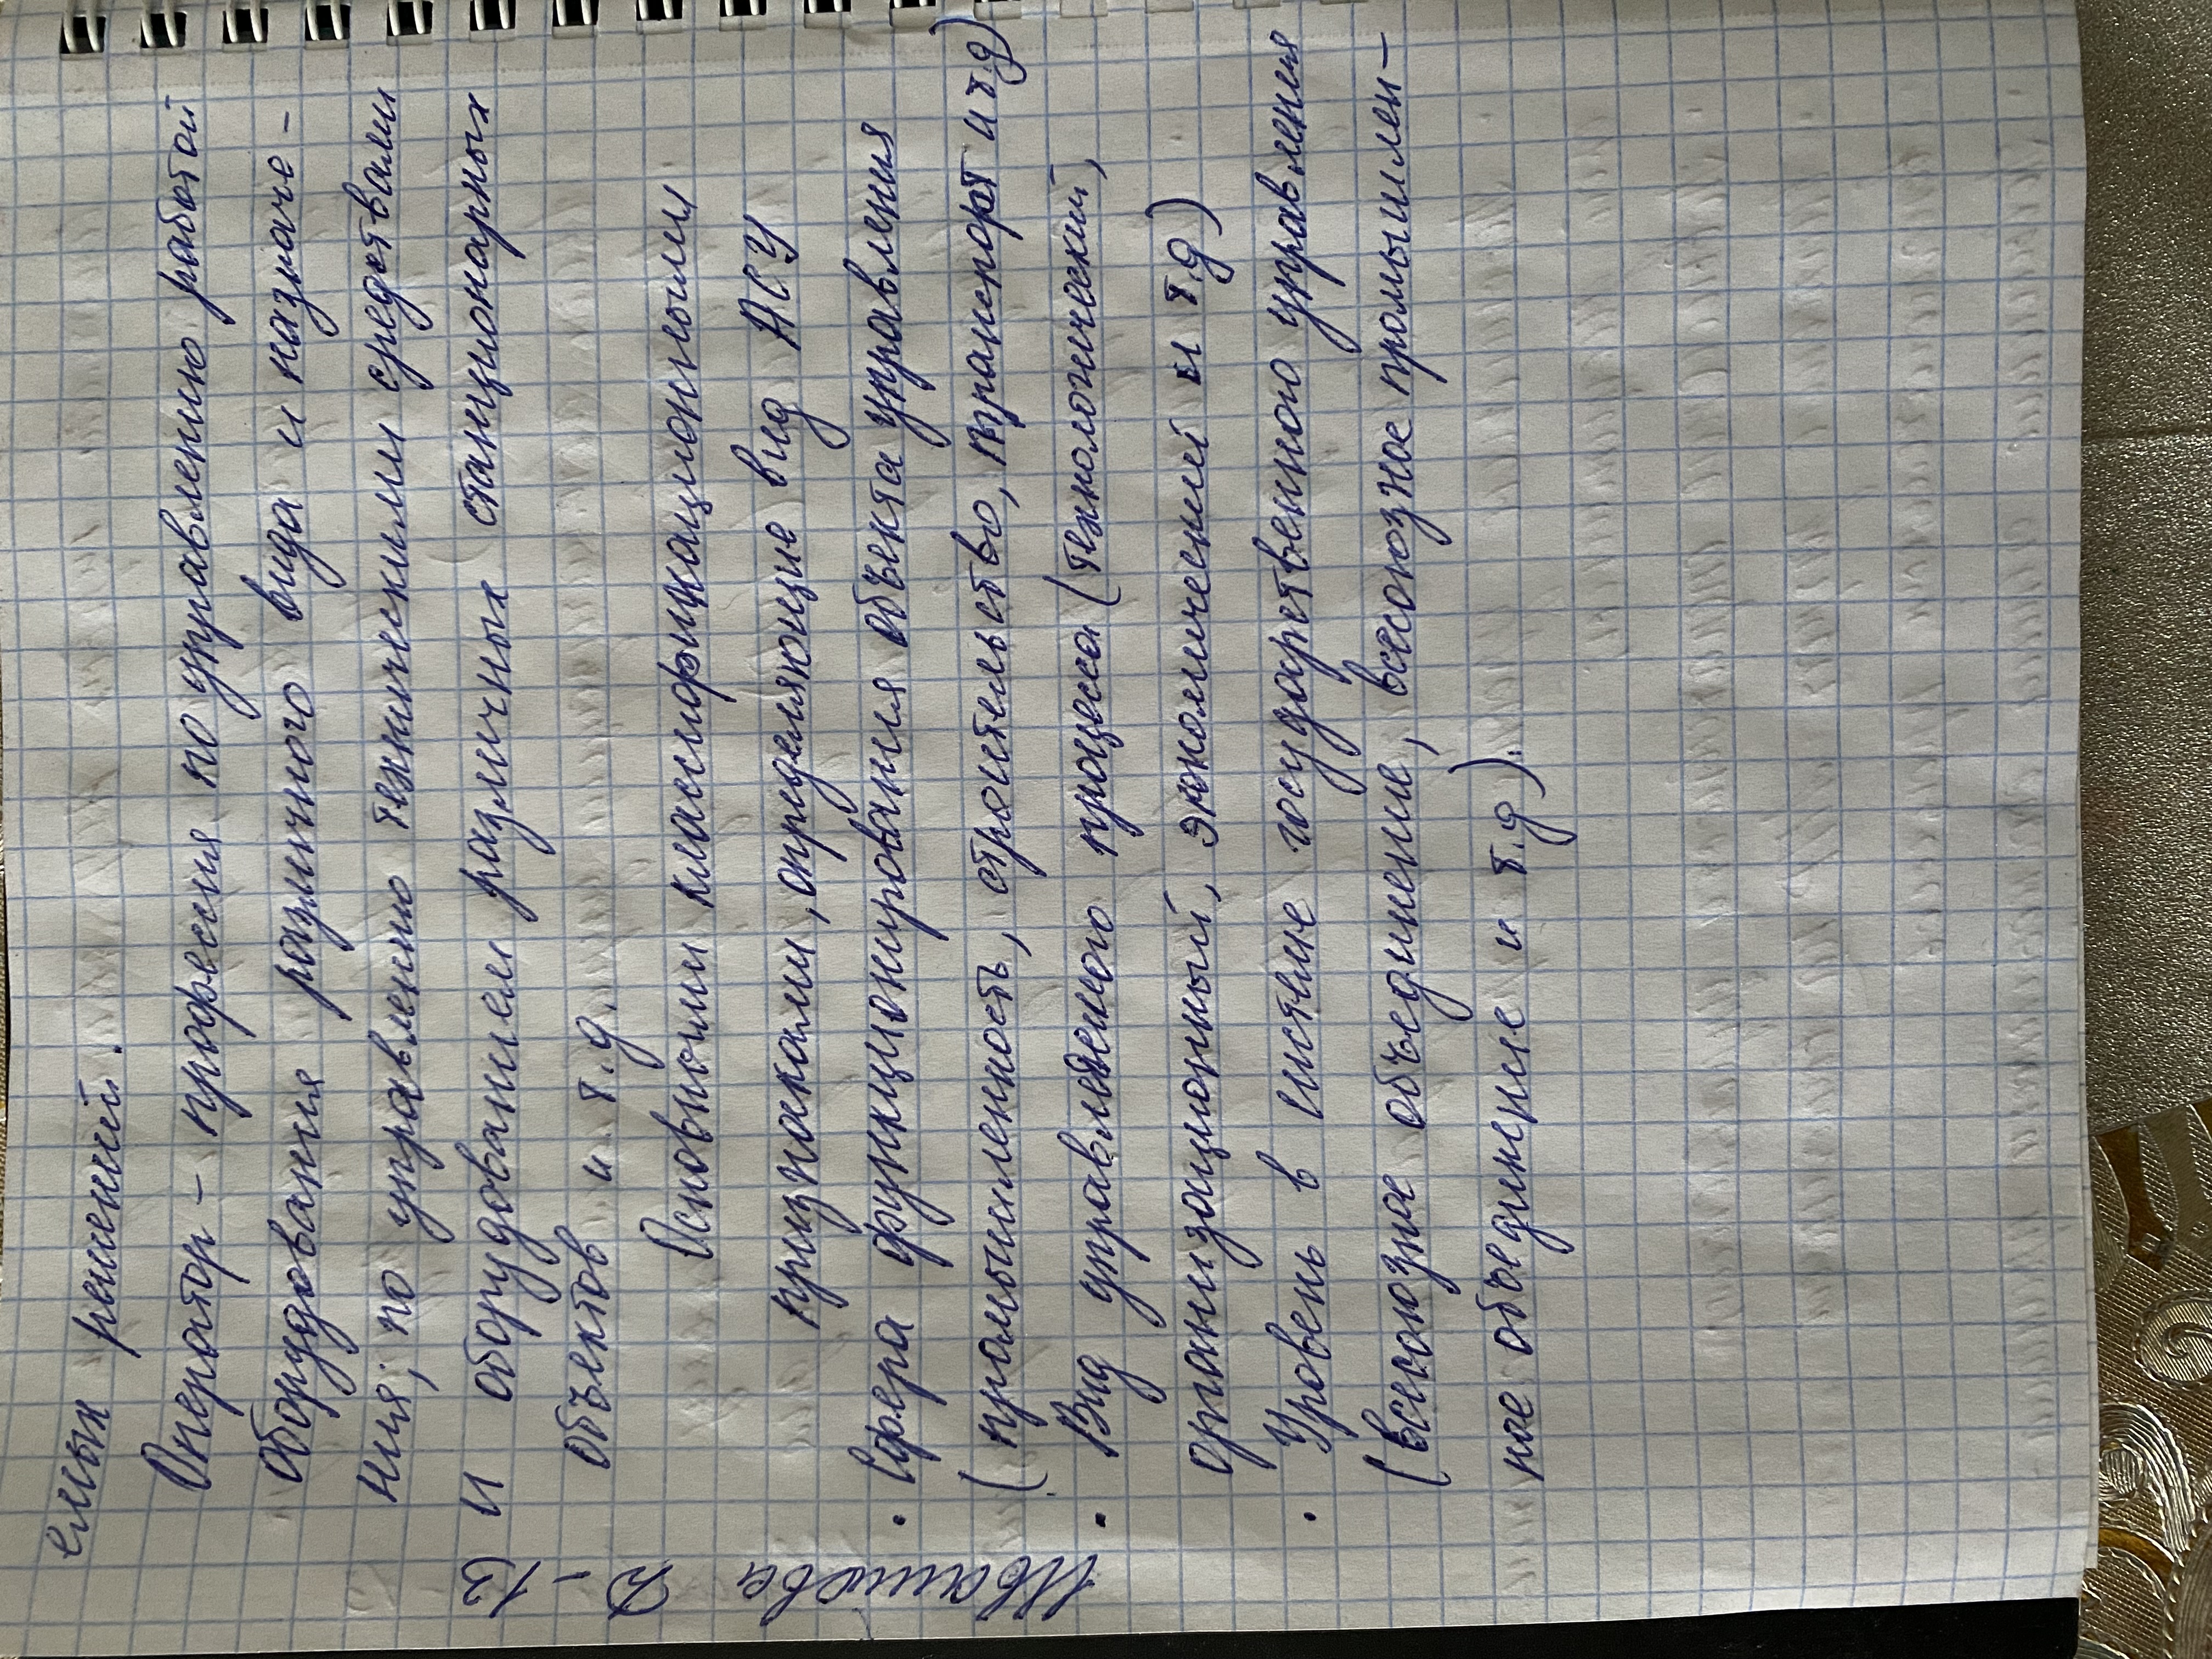 емых решений.
Оператор - профессия по управлению работой
оборудования различного вида и назначе-
ния; по управлению техническими средствами
и оборудованием различных станционарных
объектов и т.д.
Основными классификационными
признаками, определяющие вид АСУ
• Сфера функционирования объекта управления
(промышленность, строительство, транспорт и т.д)
• Вид управляемого процесса (технологический,
организационный, экономический и т.д)
• Уровень в системе государственного управления
(всесоюзное объединение, всесоюзное промышлен-
ное объединение и т.д).
Ивашова